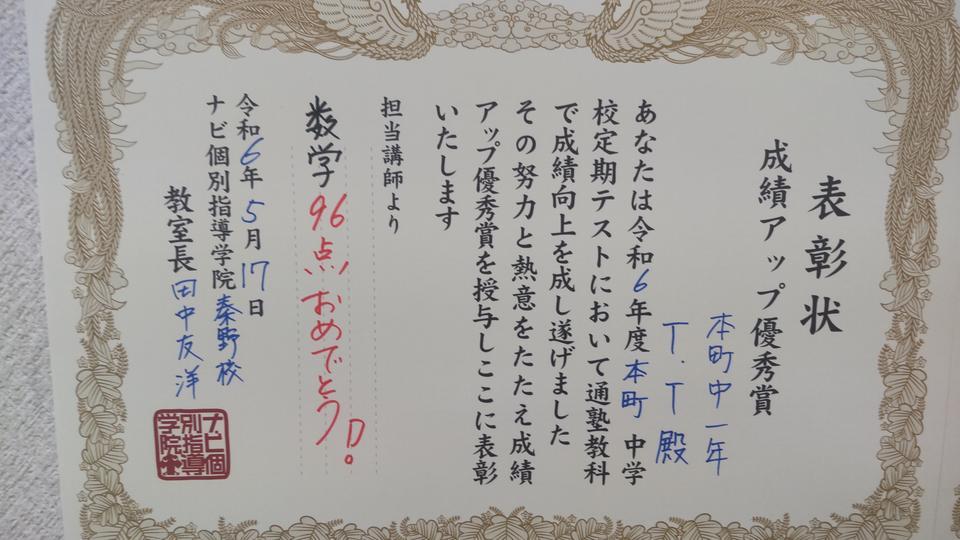 表彰状
成績アップ優秀賞
本町中一年
T.T殿
あなたは令和6年度本町中学
校定期テストにおいて通塾教科
で成績向上を成し遂げました
その努力と熱意をたたえ成績
アップ優秀賞を授与しここに表彰
いたします
担当講師より
数学96点おめでとう D。
令和6年5月17日
ナビ個別指導学院秦野校
教室長田中友洋
ナビ個
別指導
学院